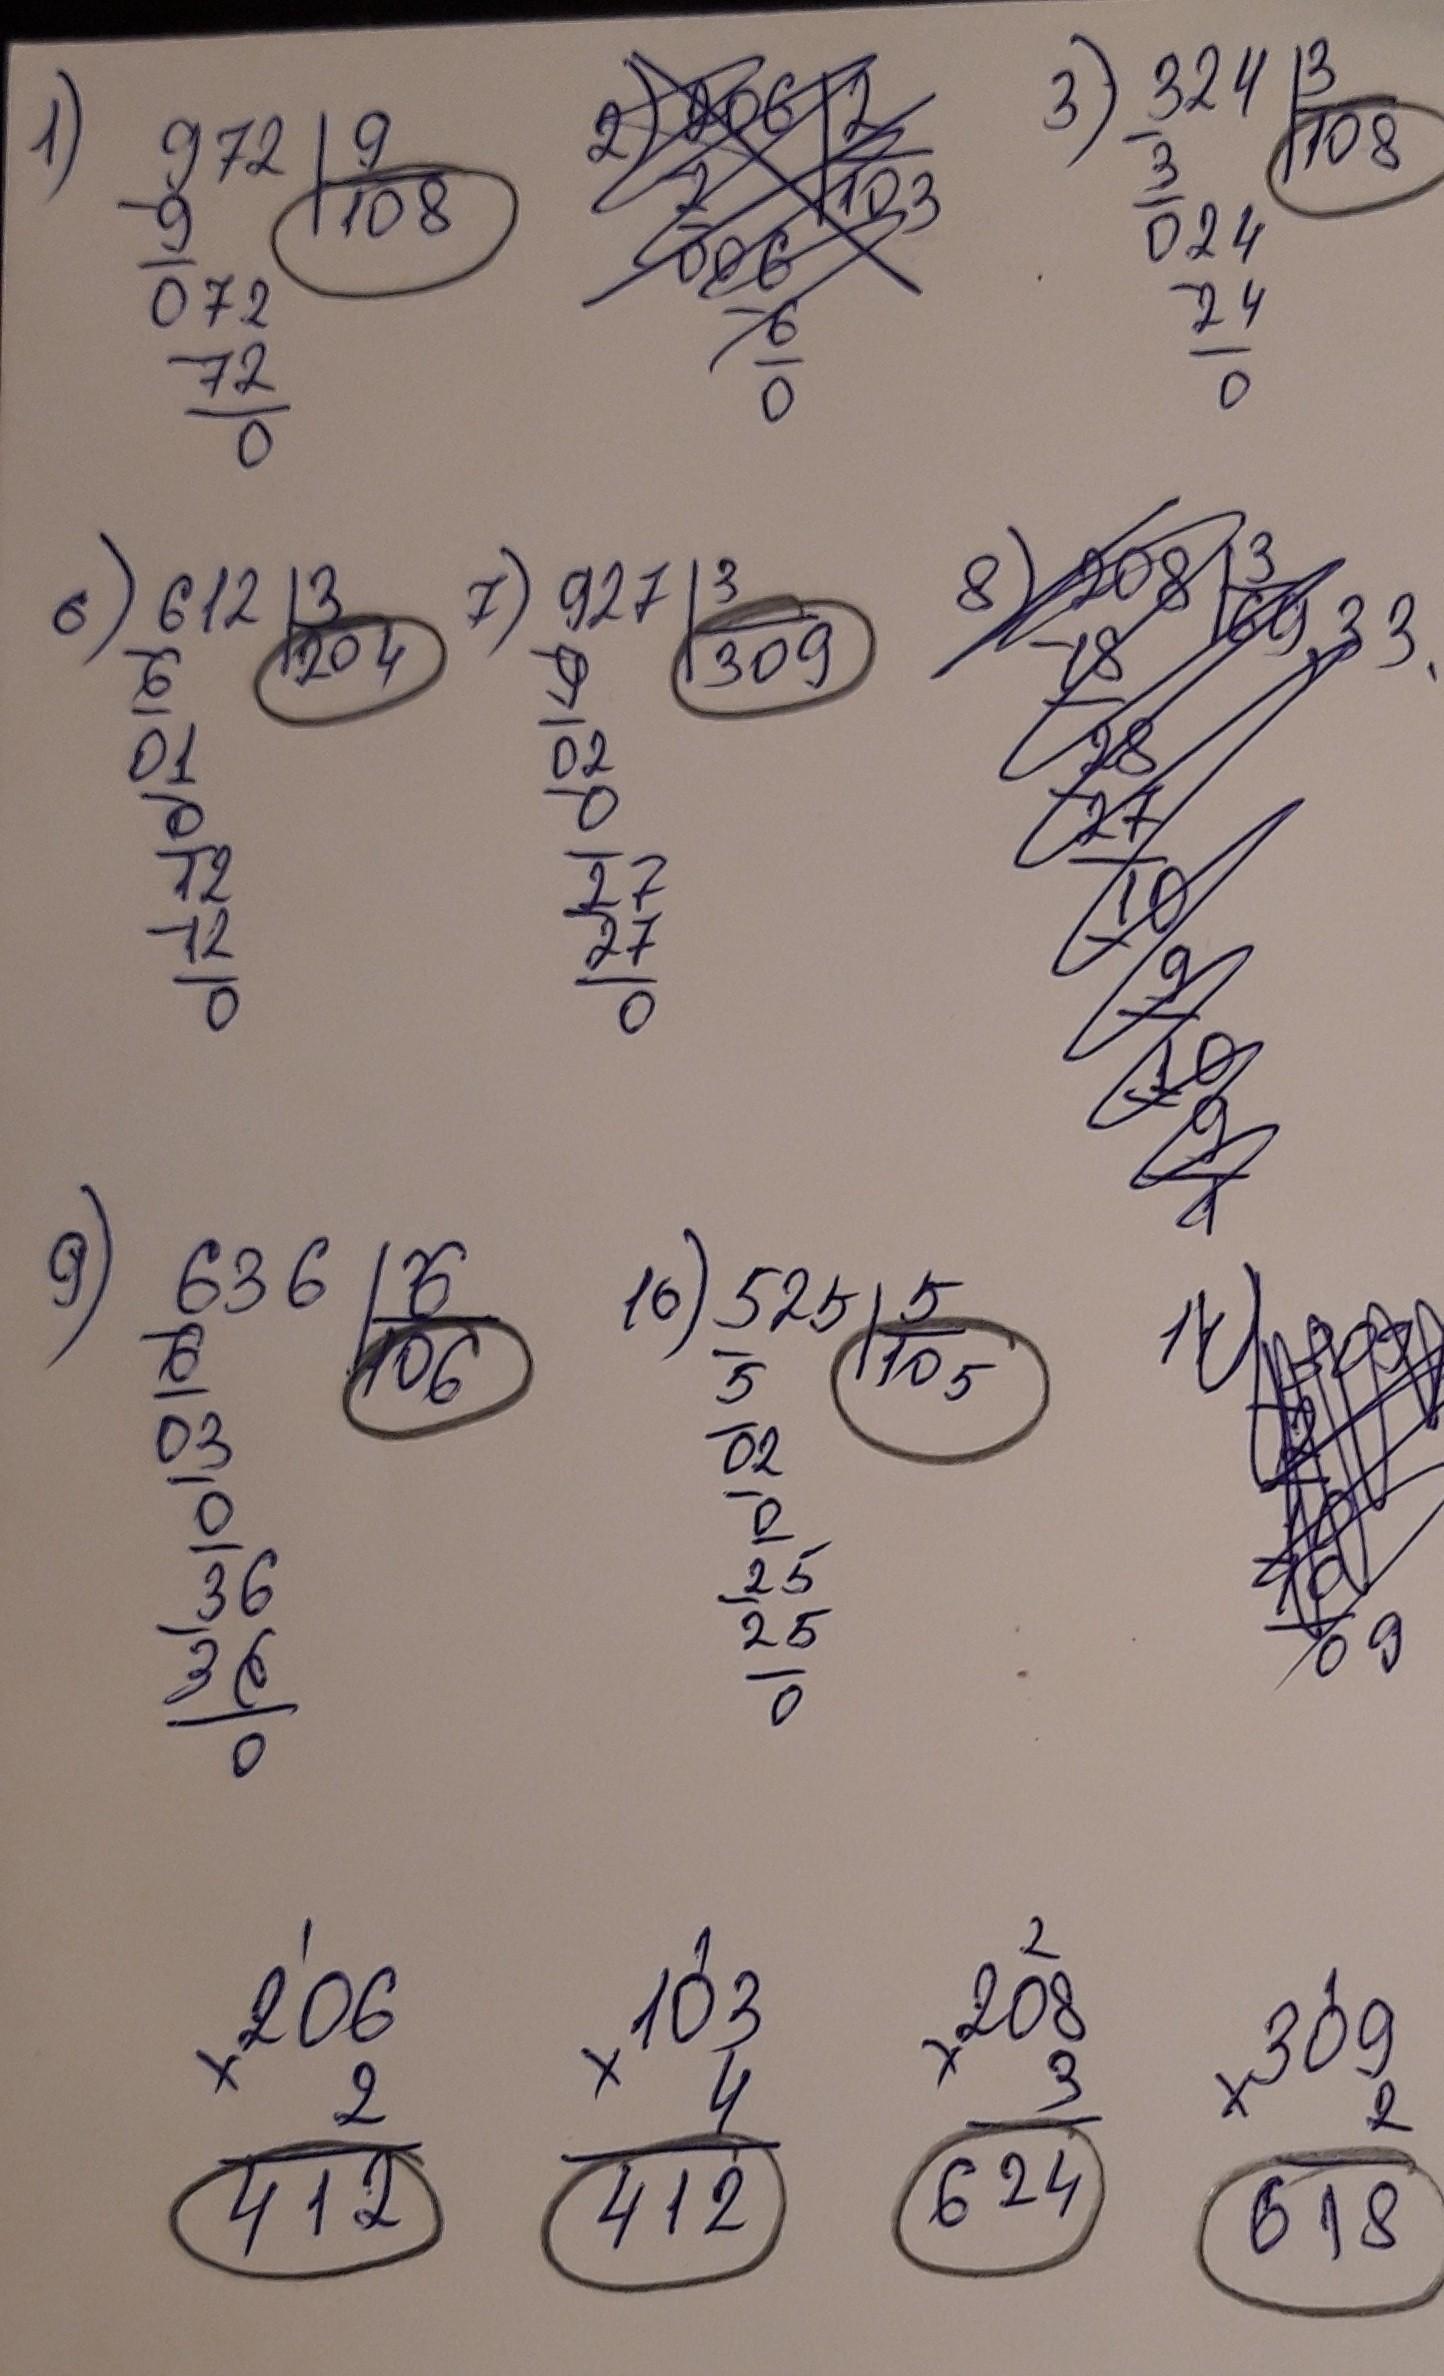 1) 972 | 9
9 108
072
72
0
2) 206 | 2
2 103
006
6
0
3) 324 | 3
3 108
024
24
0
6) 612 | 3
6 204
01
0
12
12
0
7) 927 | 3
9 309
02
0
27
27
0
8) 208 | 3
18 69,33
28
27
10
9
10
9
1
9) 636 | 6
6 106
03
0
36
36
0
10) 525 | 5
5 105
02
0
25
25
0
09
1
206
x 2
412
1
103
x 4
412
2
208
x 3
624
1
309
x 2
618